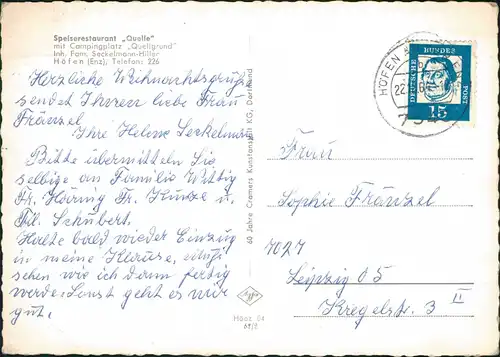 Speiserestaurant „Quelle"
mit Campingplatz „Quellgrund"
Inh. Fam. Seckelmann-Hiller
Höfen (Enz), Telefon: 226
Herzliche Weihnachtsgrüße
sendet Ihnen liebe Frau
Fränzel
Ihre Helene Seckelmann
Bitte übermitteln Sie
selbige an Familie Wittig
Fr. Hörnig Fr. Kunze u.
Frl. Schubert.
Halte bald wieder Einzug
in meine Hause,
sehen wie ich dann fertig
werde. Sonst geht es mir
gut.
60 Jahre Cramers Kunstanstalt KG, Dortmund
Agfa
Höoz 64
61/2
HÖFEN
22.
DEUTSCHE BUNDESPOST
15
Frau
Sophie Fränzel
7027
Leipzig O5
Kregelstr. 3 II